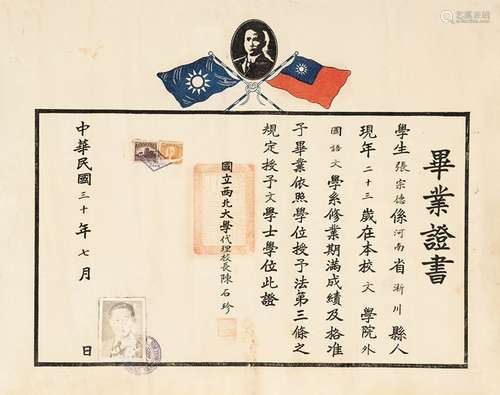 畢業證書
學生張宗德係河南省淅川縣人
現年二十三歲在本校文學院外
國語文學系修業期滿成績及格准
予畢業依照學位授予法第三條之
規定授予文學士學位此證
國立西北大學代理校長陳石珍
中華民國三十年七月 日